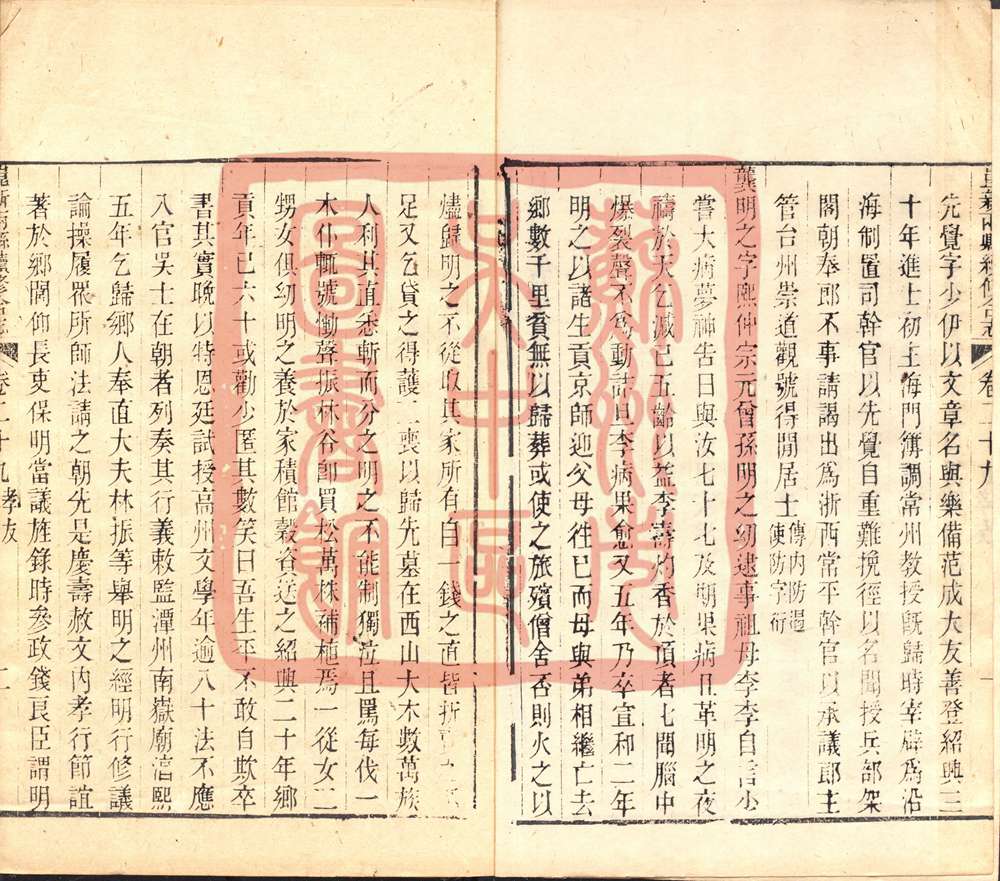 先覺字少伊以文章名與樂備范成大友善登紹興三
十年進士初主海門簿調常州教授既歸時宰辟爲沿
海制置司幹官以先覺自重難挽徑以名聞授兵部架
閣朝奉郎不事請謁出爲浙西常平幹官以承議郎主
管台州崇道觀號得閒居士
傳內防邊
使防字衍
龔明之字熙仲宗元曾孫明之幼逮事祖母李李自言少
嘗大病夢神告曰與汝七十七及期果病且革明之夜
禱於天乞減已五齡以益李壽灼香於頂者七聞腦中
爆裂聲不爲動詰旦李病果愈又五年乃卒宣和二年
明之以諸生貢京師迎父母徃巳而母與弟相繼亡去
鄉數千里貧無以歸葬或使之旅殯僧舍否則火之以
卷二十九
燼歸明之不從收其家所有自一錢之直皆折
足又乞貸之得護二喪以歸先墓在西山大木數萬族
人利其直悉斬而分之明之不能制獨泣且罵每伐一
木仆輒號慟聲振林谷卽買松萬株補植焉一從女二
甥女俱幼明之養於家積館穀資送之紹興二十年鄉
貢年已六十或勸少匿其數笑曰吾生平不敢自欺卒
書其實晩以特恩廷試授高州文學年逾八十法不應
入官吳士在朝者列奏其行義敕監潭州南嶽廟淳熙
五年乞歸鄉人奉直大夫林振等舉明之經明行修議
論操履衆所師法請之朝先是慶壽赦文內孝行節誼
著於鄉閭仰長吏保明當議旌錄時參政錢良臣謂明
卷二十九 孝友 二